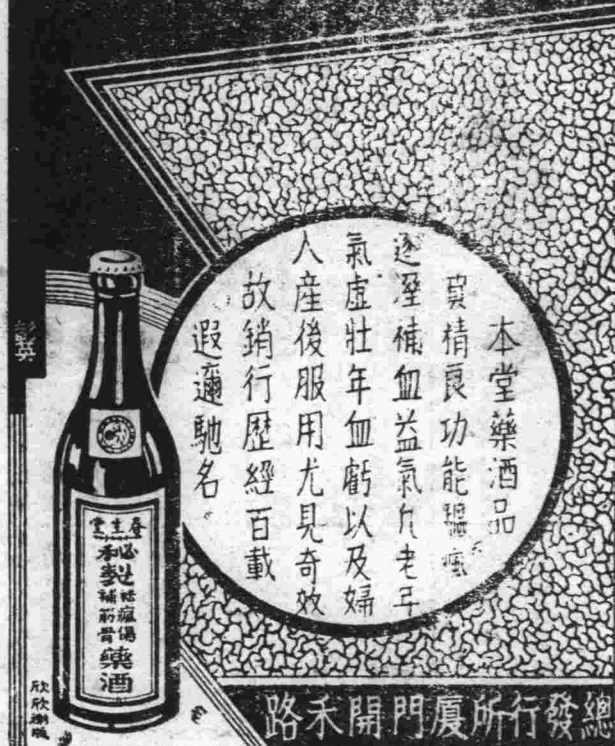 本堂藥酒品
質精良功能驅風
逐溼補血益氣凡老年
氣虛壯年血虧以及婦
人產後服用尤見奇效
故銷行歷經百載
遐邇馳名。
春生堂
秘製
祛瘋傷
補筋骨
藥酒
總發行所廈門開禾路